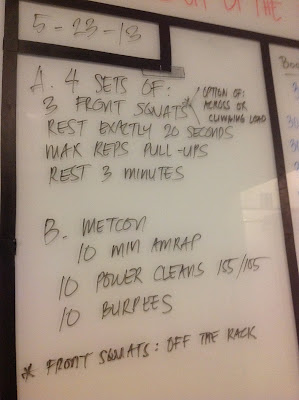 OF THE
5-23-13
A. 4 SETS OF:
3 FRONT SQUATS * OPTION OF:
ACROSS OR
CLIMBING LOAD
REST EXACTLY 20 SECONDS
MAX REPS PULL-UPS
REST 3 MINUTES
B. METCON
10 MIN AMRAP
10 POWER CLEANS 155/105
10 BURPEES
* FRONT SQUATS: OFF THE RACK